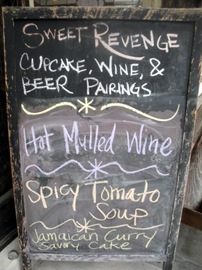 Sweet Revenge
Cupcake, Wine, &
Beer Pairings
Hot Mulled Wine
Spicy Tomato
Soup
Jamaican Curry
Savory Cake